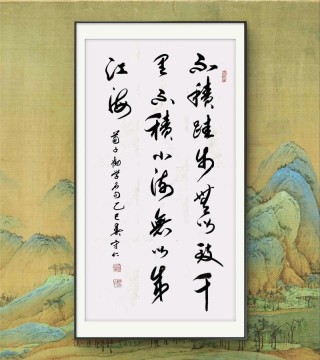 不積跬步無以致千
里不積小流無以成
江海
荀子勸學名句乙巳